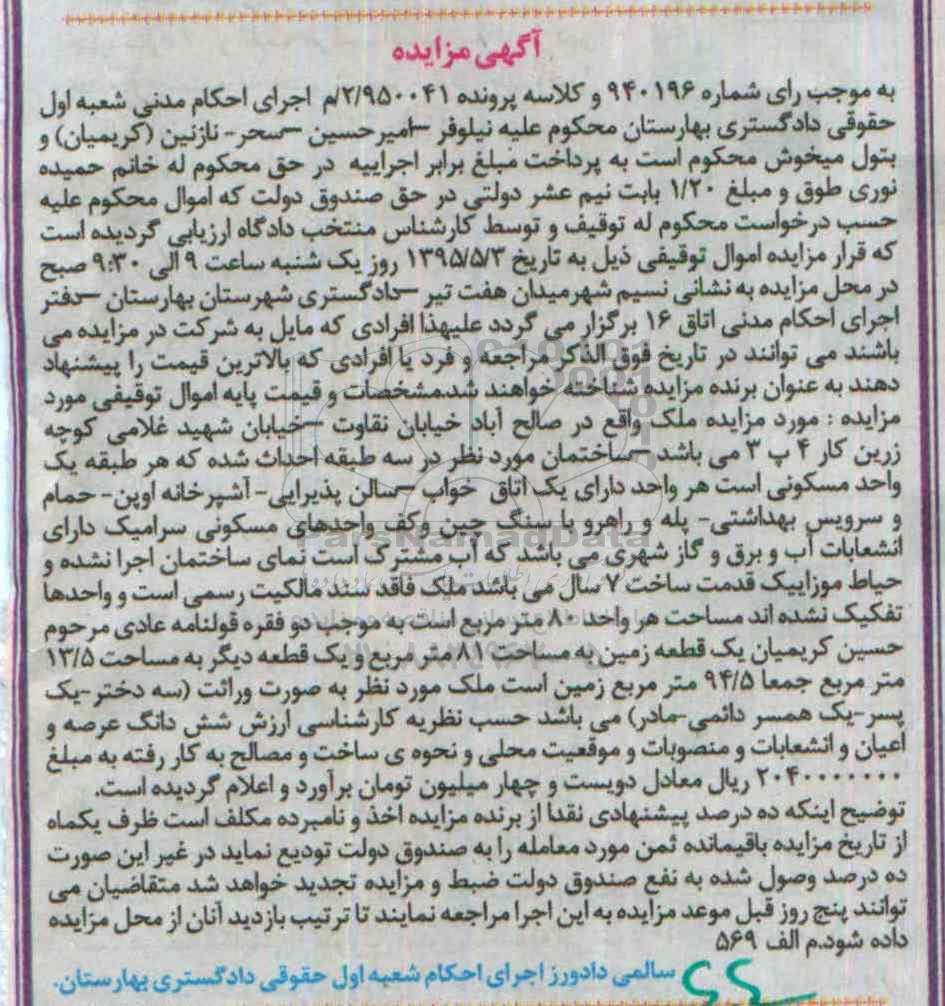 آگهی مزایده
به موجب رای شماره ۹۴۰۱۹۶ و کلاسه پرونده ۲/۹۵۰۰۴۱/م اجرای احکام مدنی شعبه اول
حقوقی دادگستری بهارستان محکوم علیه نیلوفر –امیرحسین –سحر- نازنین (کریمیان) و
بتول میخوش محکوم است به پرداخت مبلغ برابر اجراییه در حق محکوم له خانم حمیده
نوری طوق و مبلغ ۱/۲۰ بابت نیم عشر دولتی در حق صندوق دولت که اموال محکوم علیه
حسب درخواست محکوم له توقیف و توسط کارشناس منتخب دادگاه ارزیابی گردیده است
که قرار مزایده اموال توقیفی ذیل به تاریخ ۱۳۹۵/۵/۳ روز یک شنبه ساعت ۹ الی ۹:۳۰ صبح
در محل مزایده به نشانی نسیم شهرمیدان هفت تیر –دادگستری شهرستان بهارستان –دفتر
اجرای احکام مدنی اتاق ۱۶ برگزار می گردد علیهذا افرادی که مایل به شرکت در مزایده می
باشند می توانند در تاریخ فوق الذکر مراجعه و فرد یا افرادی که بالاترین قیمت را پیشنهاد
دهند به عنوان برنده مزایده شناخته خواهند شد.مشخصات و قیمت پایه اموال توقیفی مورد
مزایده : مورد مزایده ملک واقع در صالح آباد خیابان نقاوت –خیابان شهید غلامی کوچه
زرین کار ۴ پ ۳ می باشد –ساختمان مورد نظر در سه طبقه احداث شده که هر طبقه یک
واحد مسکونی است هر واحد دارای یک اتاق خواب –سالن پذیرایی- آشپرخانه اوپن- حمام
و سرویس بهداشتی- پله و راهرو با سنگ چین وکف واحدهای مسکونی سرامیک دارای
انشعابات آب و برق و گاز شهری می باشد که آب مشترک است نمای ساختمان اجرا نشده و
حیاط موزاییک قدمت ساخت ۷ سال می باشد ملک فاقد سند مالکیت رسمی است و واحدها
تفکیک نشده اند مساحت هر واحد ۸۰ متر مربع است به موجب دو فقره قولنامه عادی مرحوم
حسین کریمیان یک قطعه زمین به مساحت ۸۱ متر مربع و یک قطعه دیگر به مساحت ۱۳/۵
متر مربع جمعا ۹۴/۵ متر مربع زمین است ملک مورد نظر به صورت وراثت (سه دختر-یک
پسر-یک همسر دائمی-مادر) می باشد حسب نظریه کارشناسی ارزش شش دانگ عرصه و
اعیان و انشعابات و منصوبات و موقعیت محلی و نحوه ی ساخت و مصالح به کار رفته به مبلغ
۲۰۴۰۰۰۰۰۰۰ ریال معادل دویست و چهار میلیون تومان برآورد و اعلام گردیده است.
توضیح اینکه ده درصد پیشنهادی نقدا از برنده مزایده اخذ و نامبرده مکلف است ظرف یکماه
از تاریخ مزایده باقیمانده ثمن مورد معامله را به صندوق دولت تودیع نماید در غیر این صورت
ده درصد وصول شده به نفع صندوق دولت ضبط و مزایده تجدید خواهد شد متقاضیان می
توانند پنج روز قبل موعد مزایده به این اجرا مراجعه نمایند تا ترتیب بازدید آنان از محل مزایده
داده شود.م الف ۵۶۹
سالمی دادورز اجرای احکام شعبه اول حقوقی دادگستری بهارستان.
ParsNamadData